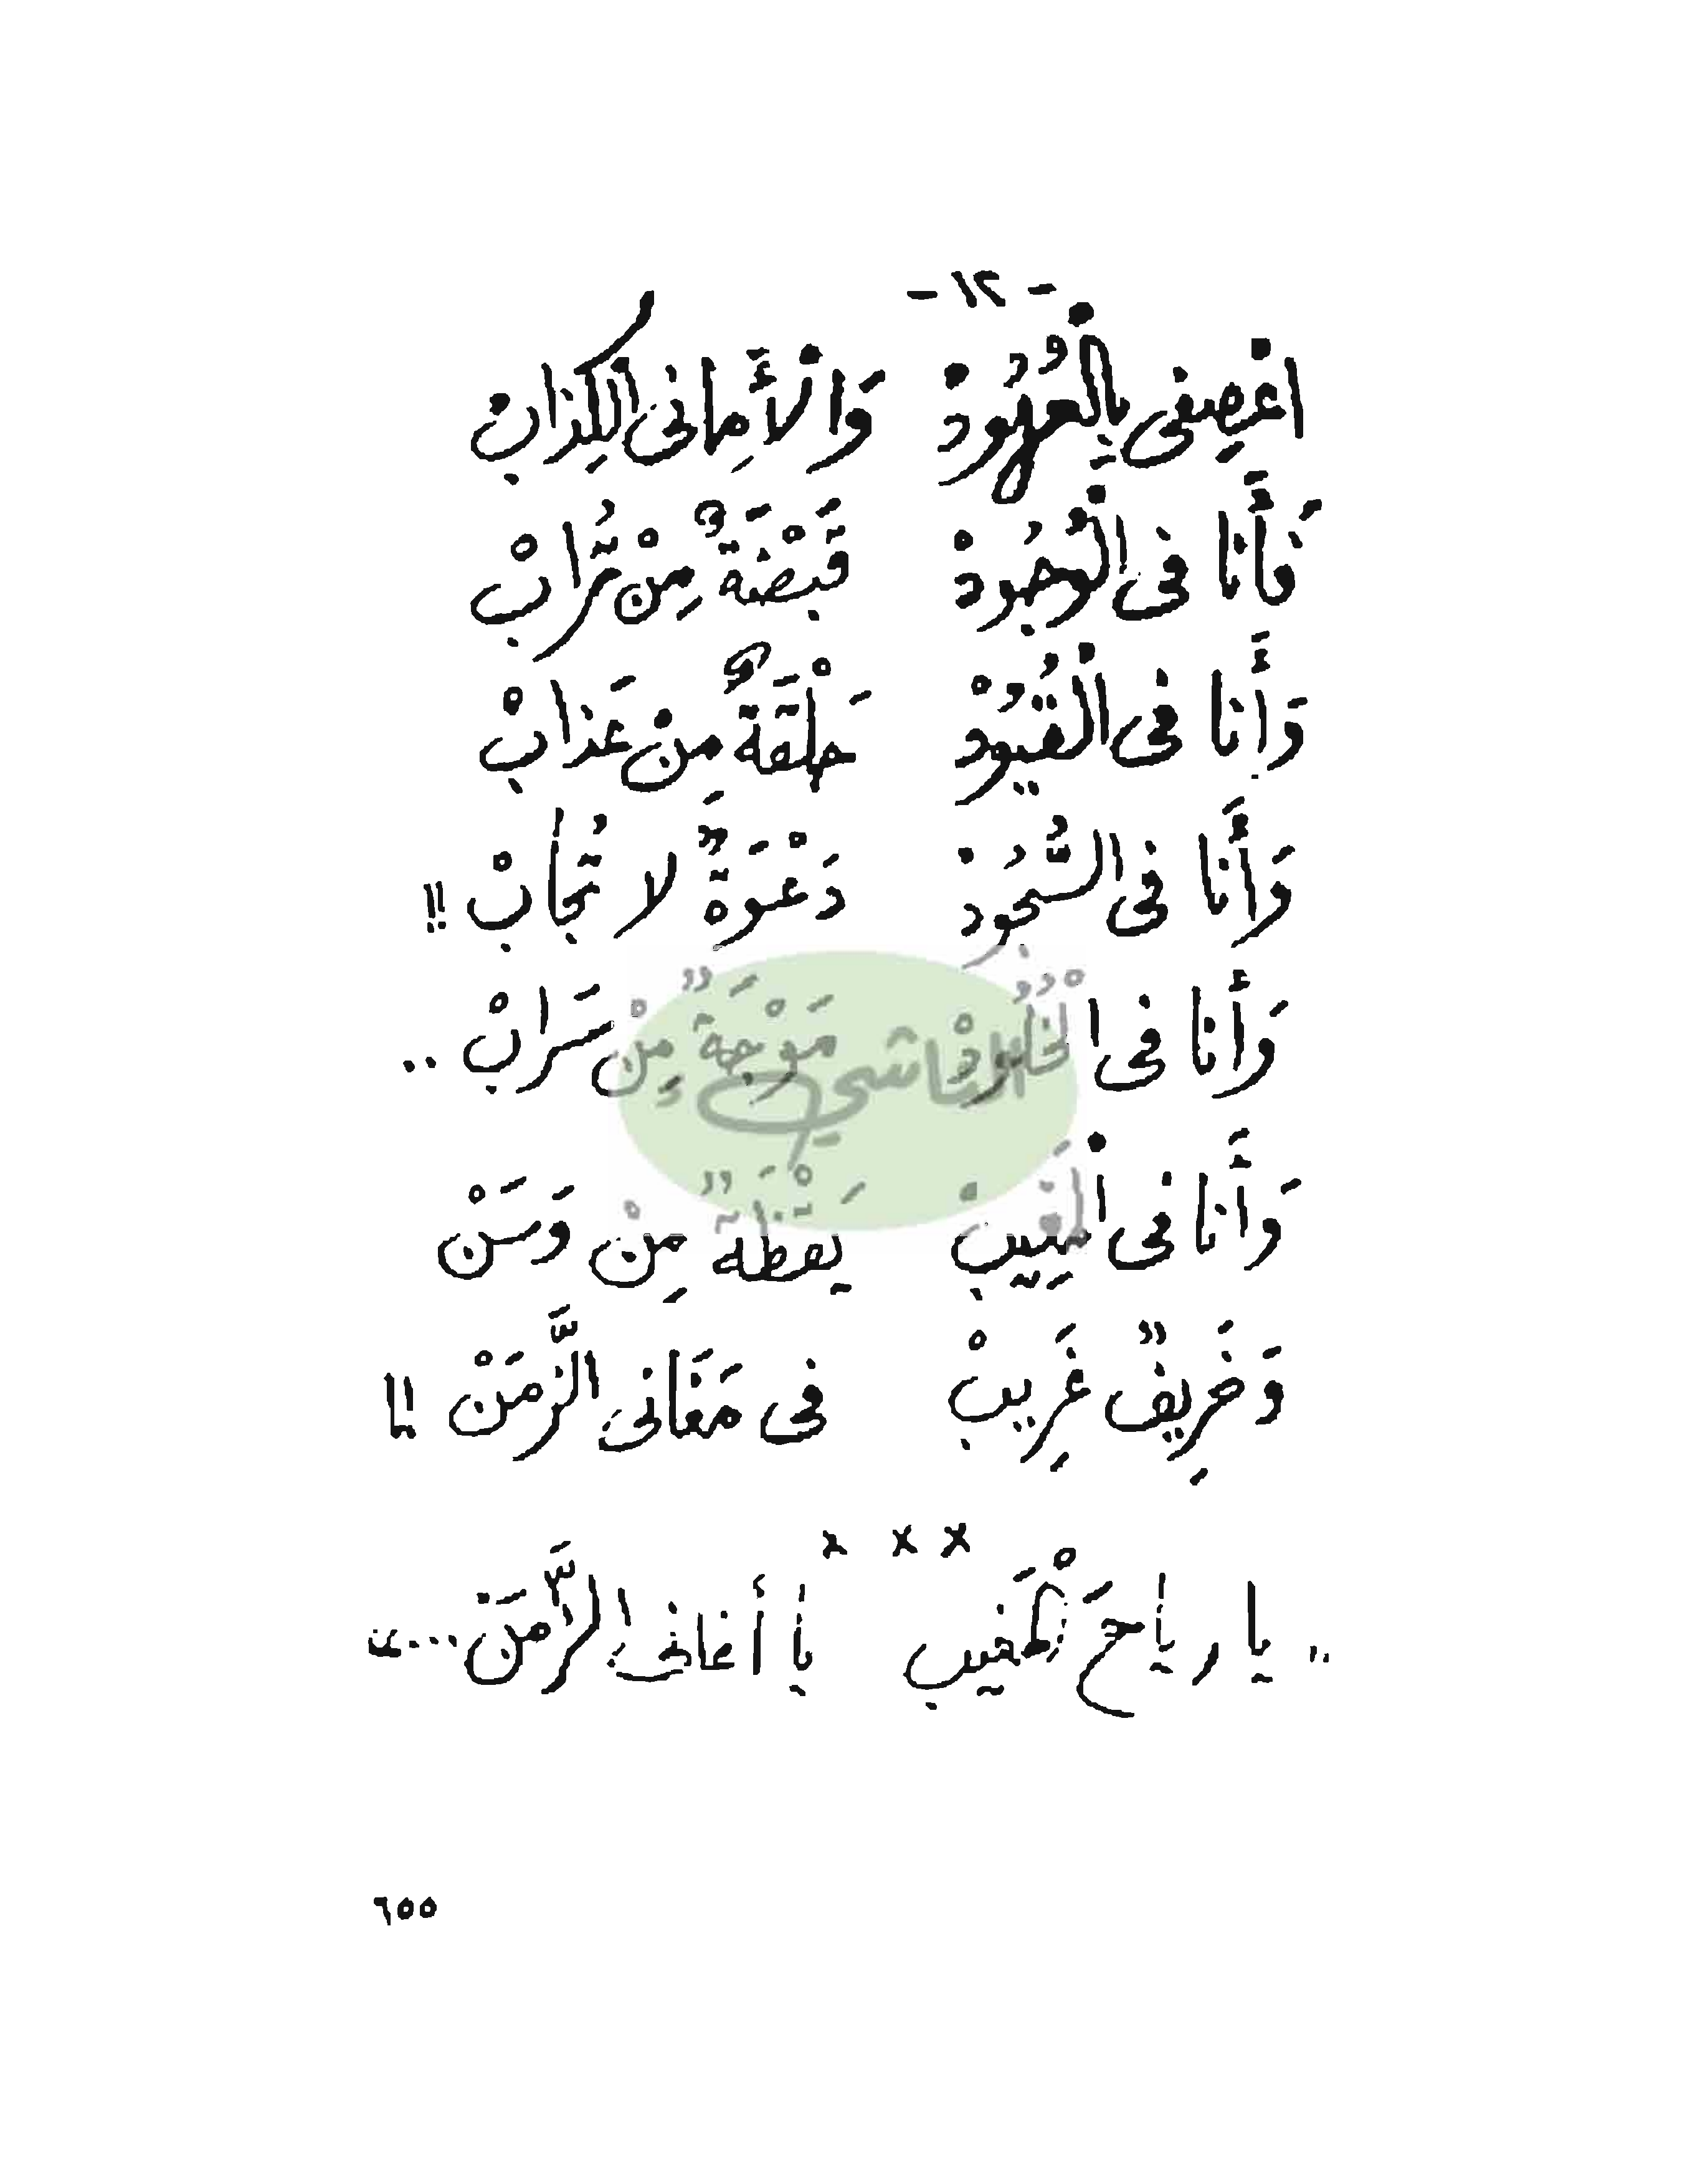 - ١٢ -
اعْصِفى بِالْعُهُودْ وَالْأَمِانى الْكِذَابْ
فَأَنا فى الْوُجُودْ قَبْضَةٌ مِنْ تُرَابْ
وَأَنا فى الْقُيُودْ حَلْقَةٌ مِنْ عَذابْ
وَأَنَا فى السُّجُودْ دَعْوَةٌ لا تُجَابْ !!
وَأَنا فى الْخُلُودْ مَوْجَةٌ مِنْ سَرَابْ ..
وَأَنا فى الْمَغِيبْ يَقْظَةٌ مِنْ وَسَنْ
وَخَرِيفٌ غَرِيبْ فى مَغَانى الزَّمَنْ !!
× × ×
.. يا رياحَ الْمَغيب يا أغانى الزَّمَنْ ...
٦٥٥